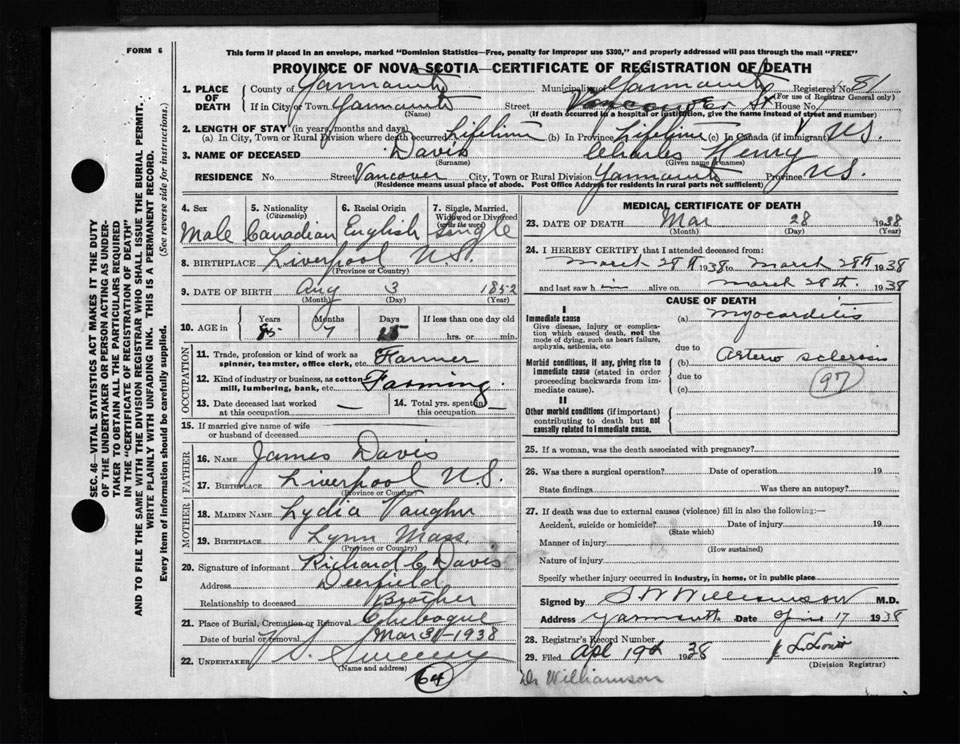 FORM 6
This form if placed in an envelope, marked "Dominion Statistics—Free, penalty for improper use $300," and properly addressed will pass through the mail "FREE"
PROVINCE OF NOVA SCOTIA—CERTIFICATE OF REGISTRATION OF DEATH
1. PLACE OF DEATH County of Yarmouth Municipality Yarmouth Registered No 81
(For use of Registrar General only)
If in City or Town Yarmouth Street Vancouver St House No
(Name) (If death occurred in a hospital or institution, give the name instead of street and number)
2. LENGTH OF STAY (in years, months and days)
(a) In City, Town or Rural Division where death occurred Lifetime (b) In Province Lifetime (c) In Canada (if immigrant) N.S.
3. NAME OF DECEASED Davis Charles Henry
(Surname) (Given name or names)
RESIDENCE No. Street Vancover City, Town or Rural Division Yarmouth Province N.S.
(Residence means usual place of abode. Post Office Address for residents in rural parts not sufficient)
4. Sex 5. Nationality (Citizenship) 6. Racial Origin 7. Single, Married, Widowed or Divorced (write the word)
Male Canadian English Single
8. BIRTHPLACE Liverpool N.S.
(Province or Country)
9. DATE OF BIRTH Aug 3 1852
(Month) (Day) (Year)
10. AGE in Years Months Days If less than one day old
85 7 25 hrs. or min.
OCCUPATION
11. Trade, profession or kind of work as spinner, teamster, office clerk, etc. Farmer
12. Kind of industry or business, as cotton mill, lumbering, bank, etc. Farming.
13. Date deceased last worked at this occupation — 14. Total yrs. spent in this occupation —
15. If married give name of wife or husband of deceased
FATHER
16. NAME James Davis
17. BIRTHPLACE Liverpool N.S.
(Province or Country)
MOTHER
18. MAIDEN NAME Lydia Vaughn
19. BIRTHPLACE Lynn Mass.
(Province or Country)
20. Signature of informant Richard C Davis
Address Deerfield
Relationship to deceased Brother
21. Place of Burial, Cremation or Removal Chebogue
Date of burial or removal Mar 31 - 1938
22. UNDERTAKER V.S. Sweeny
(Name and address)
64
MEDICAL CERTIFICATE OF DEATH
23. DATE OF DEATH Mar 28 1938
(Month) (Day) (Year)
24. I HEREBY CERTIFY that I attended deceased from:
March 28th 1938 to March 28th 1938
and last saw him alive on March 28th. 1938
CAUSE OF DEATH
I
Immediate cause (a) Myocarditis
Give disease, injury or complication which caused death, not the mode of dying, such as heart failure, asphyxia, asthenia, etc.
due to
Morbid conditions, if any, giving rise to immediate cause (stated in order proceeding backwards from immediate cause).
(b) Arterio sclerosis
due to
(c)
97
II
Other morbid conditions (if important) contributing to death but not causally related to immediate cause.
25. If a woman, was the death associated with pregnancy?
26. Was there a surgical operation? Date of operation 19
State findings Was there an autopsy?
27. If death was due to external causes (violence) fill in also the following:—
Accident, suicide or homicide? Date of injury 19
(State which)
Manner of injury
(How sustained)
Nature of injury
Specify whether injury occurred in industry, in home, or in public place
Signed by S W Williamson M.D.
Address Yarmouth Date April 17 1938
28. Registrar's Record Number
29. Filed Apl 19th 1938
(Division Registrar)
Dr Williamson
SEC. 46—VITAL STATISTICS ACT MAKES IT THE DUTY
OF THE UNDERTAKER OR PERSON ACTING AS UNDER-
TAKER TO OBTAIN ALL THE PARTICULARS REQUIRED
IN THE "CERTIFICATE OF REGISTRATION OF DEATH"
AND TO FILE THE SAME WITH THE DIVISION REGISTRAR WHO SHALL ISSUE THE BURIAL PERMIT.
WRITE PLAINLY WITH UNFADING INK. THIS IS A PERMANENT RECORD.
Every item of information should be carefully supplied. (See reverse side for instructions.)